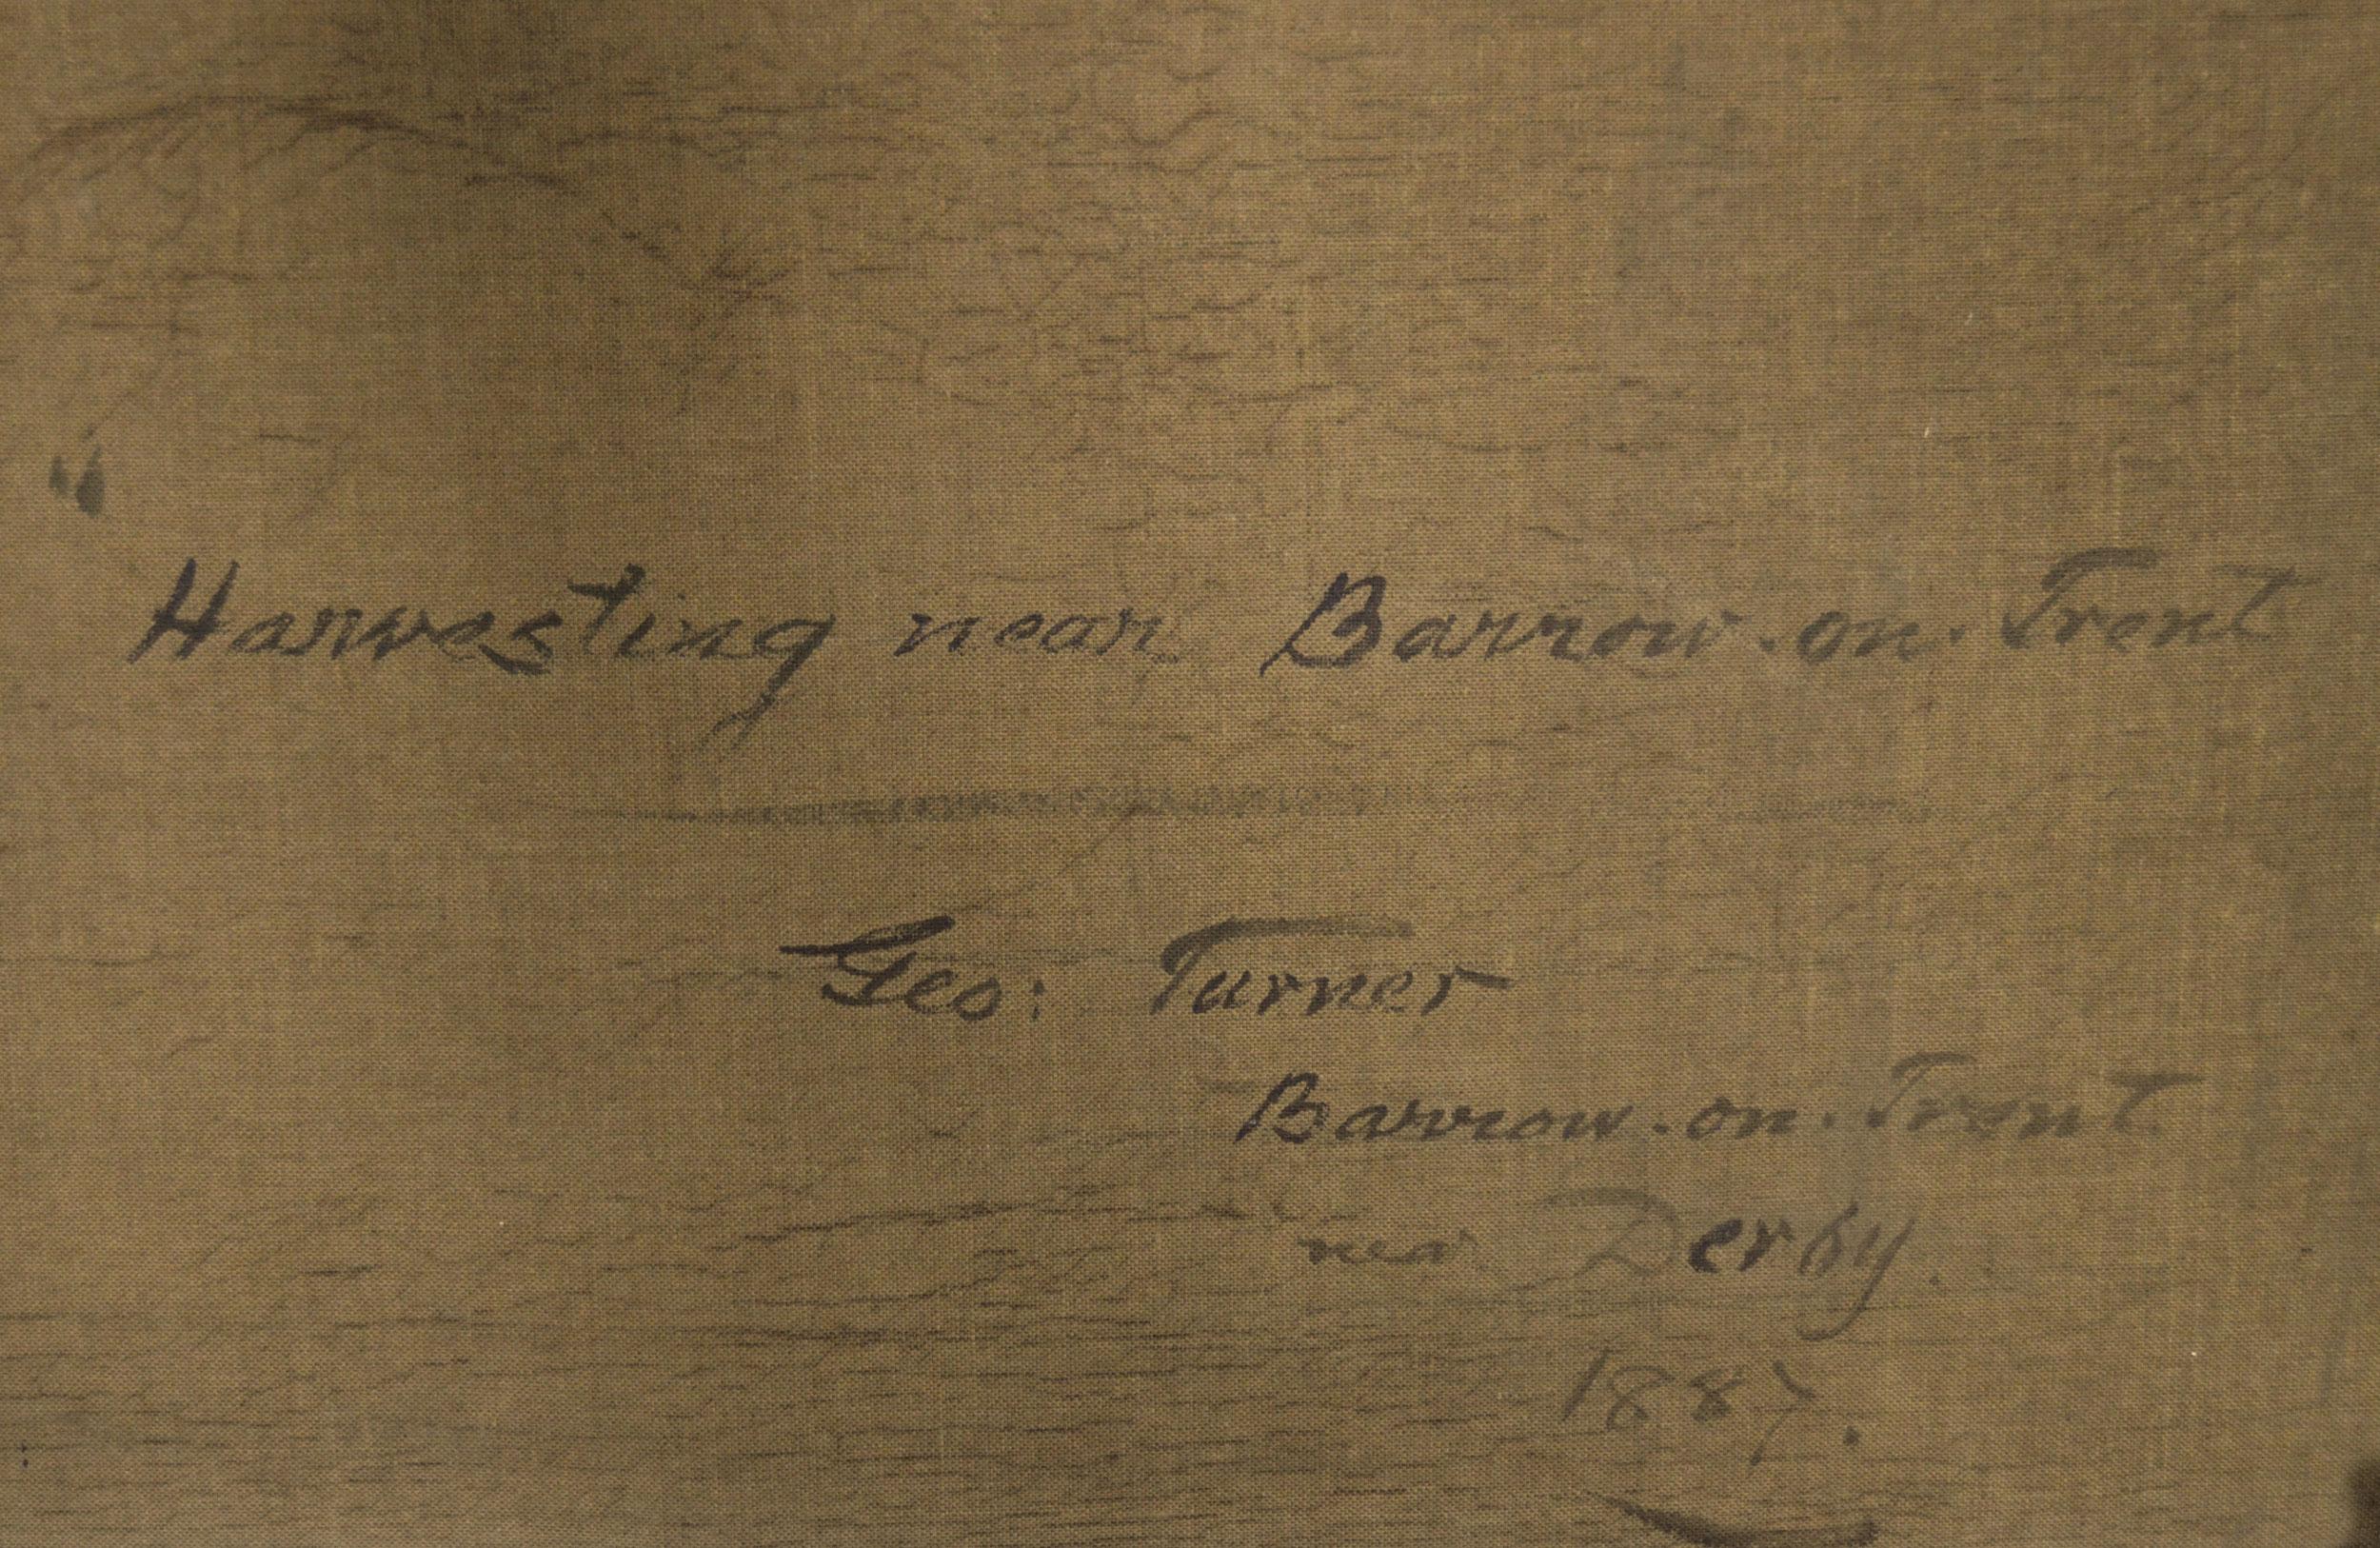 "
Harvesting near Barrow-on-Trent
Geo: Turner
Barrow-on-Trent
near Derby.
1887.